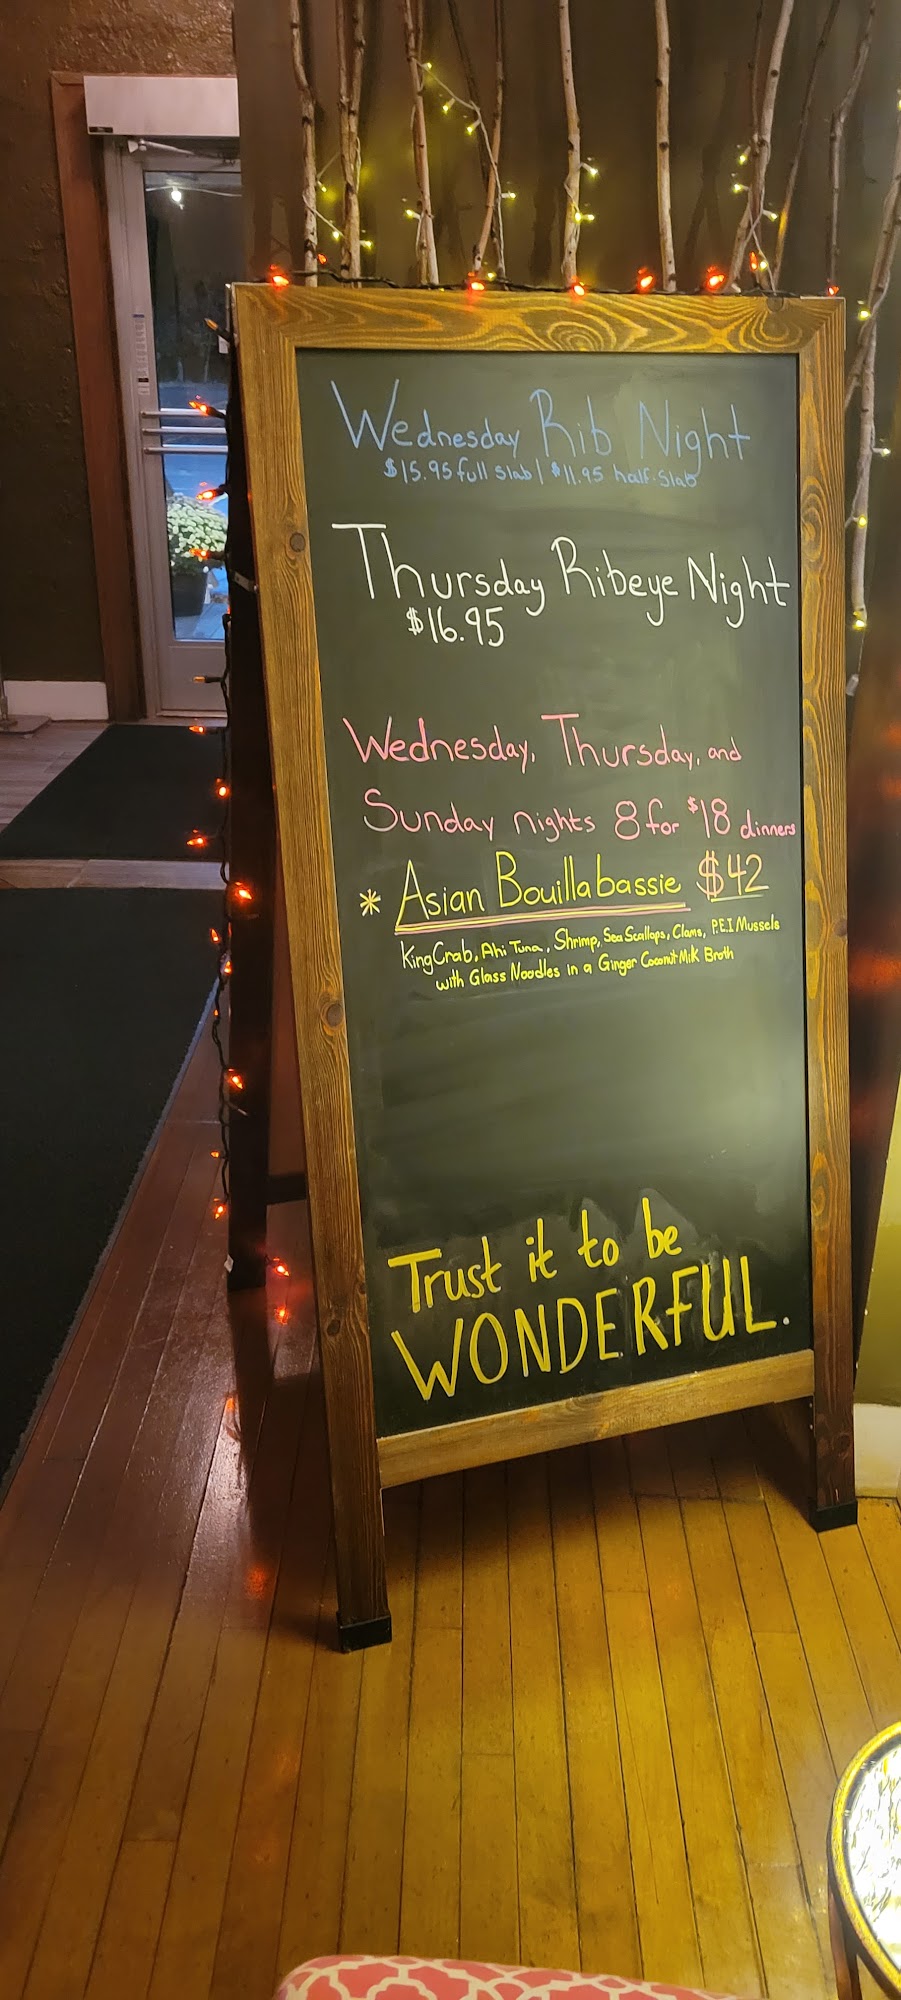 Wednesday Rib Night
$15.95 full slab | $11.95 half-slab
Thursday Ribeye Night
$16.95
Wednesday, Thursday, and
Sunday nights 8 for $18 dinners
* Asian Bouillabassie $42
King Crab, Ahi Tuna, Shrimp, Sea Scallops, Clams, P.E.I Mussels
with Glass Noodles in a Ginger Coconut Milk Broth
Trust it to be
WONDERFUL.